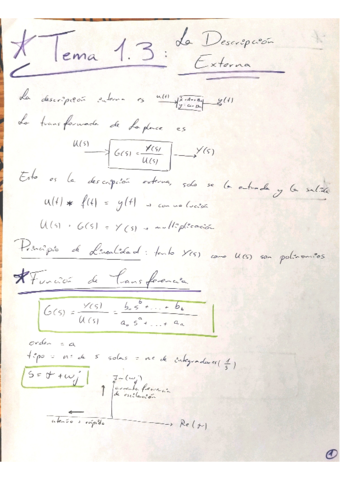 * Tema 1.3: La Descripción
Externa
La descripción externa es u(t) → → y(t)
La transformada de Laplace es
U(s) → G(s) = Y(s)/U(s) → Y(s)
Esta es la descripción externa, solo se la entrada y la salida
u(t) * f(t) = y(t) → convolución
U(s) · G(s) = Y(s) → multiplicación
Principio de linealidad: tanto Y(s) como U(s) son polinomios
* Función de Transferencia
G(s) = Y(s)/U(s)
orden = a
tipo = nº de s solas = nº de integradores (1/s)
Jm(wj)
aumenta frecuencia
de oscilación
+ rápido
Re(σ)
1